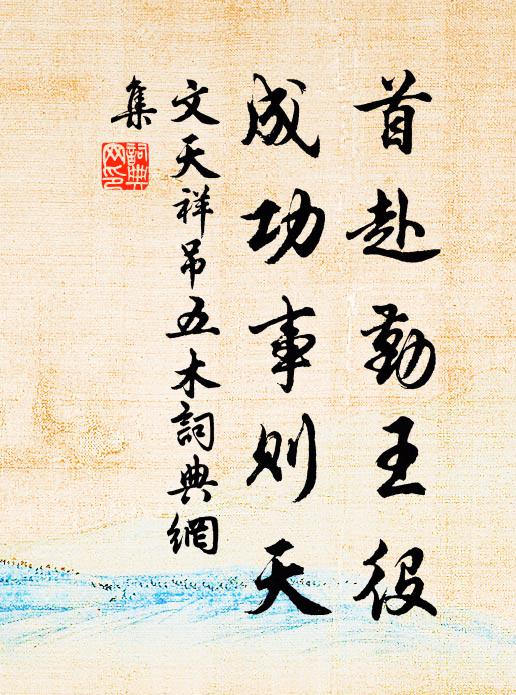 首赴勤王役
成功事则天
文天祥吊五木詞典網
集
詞典
网印